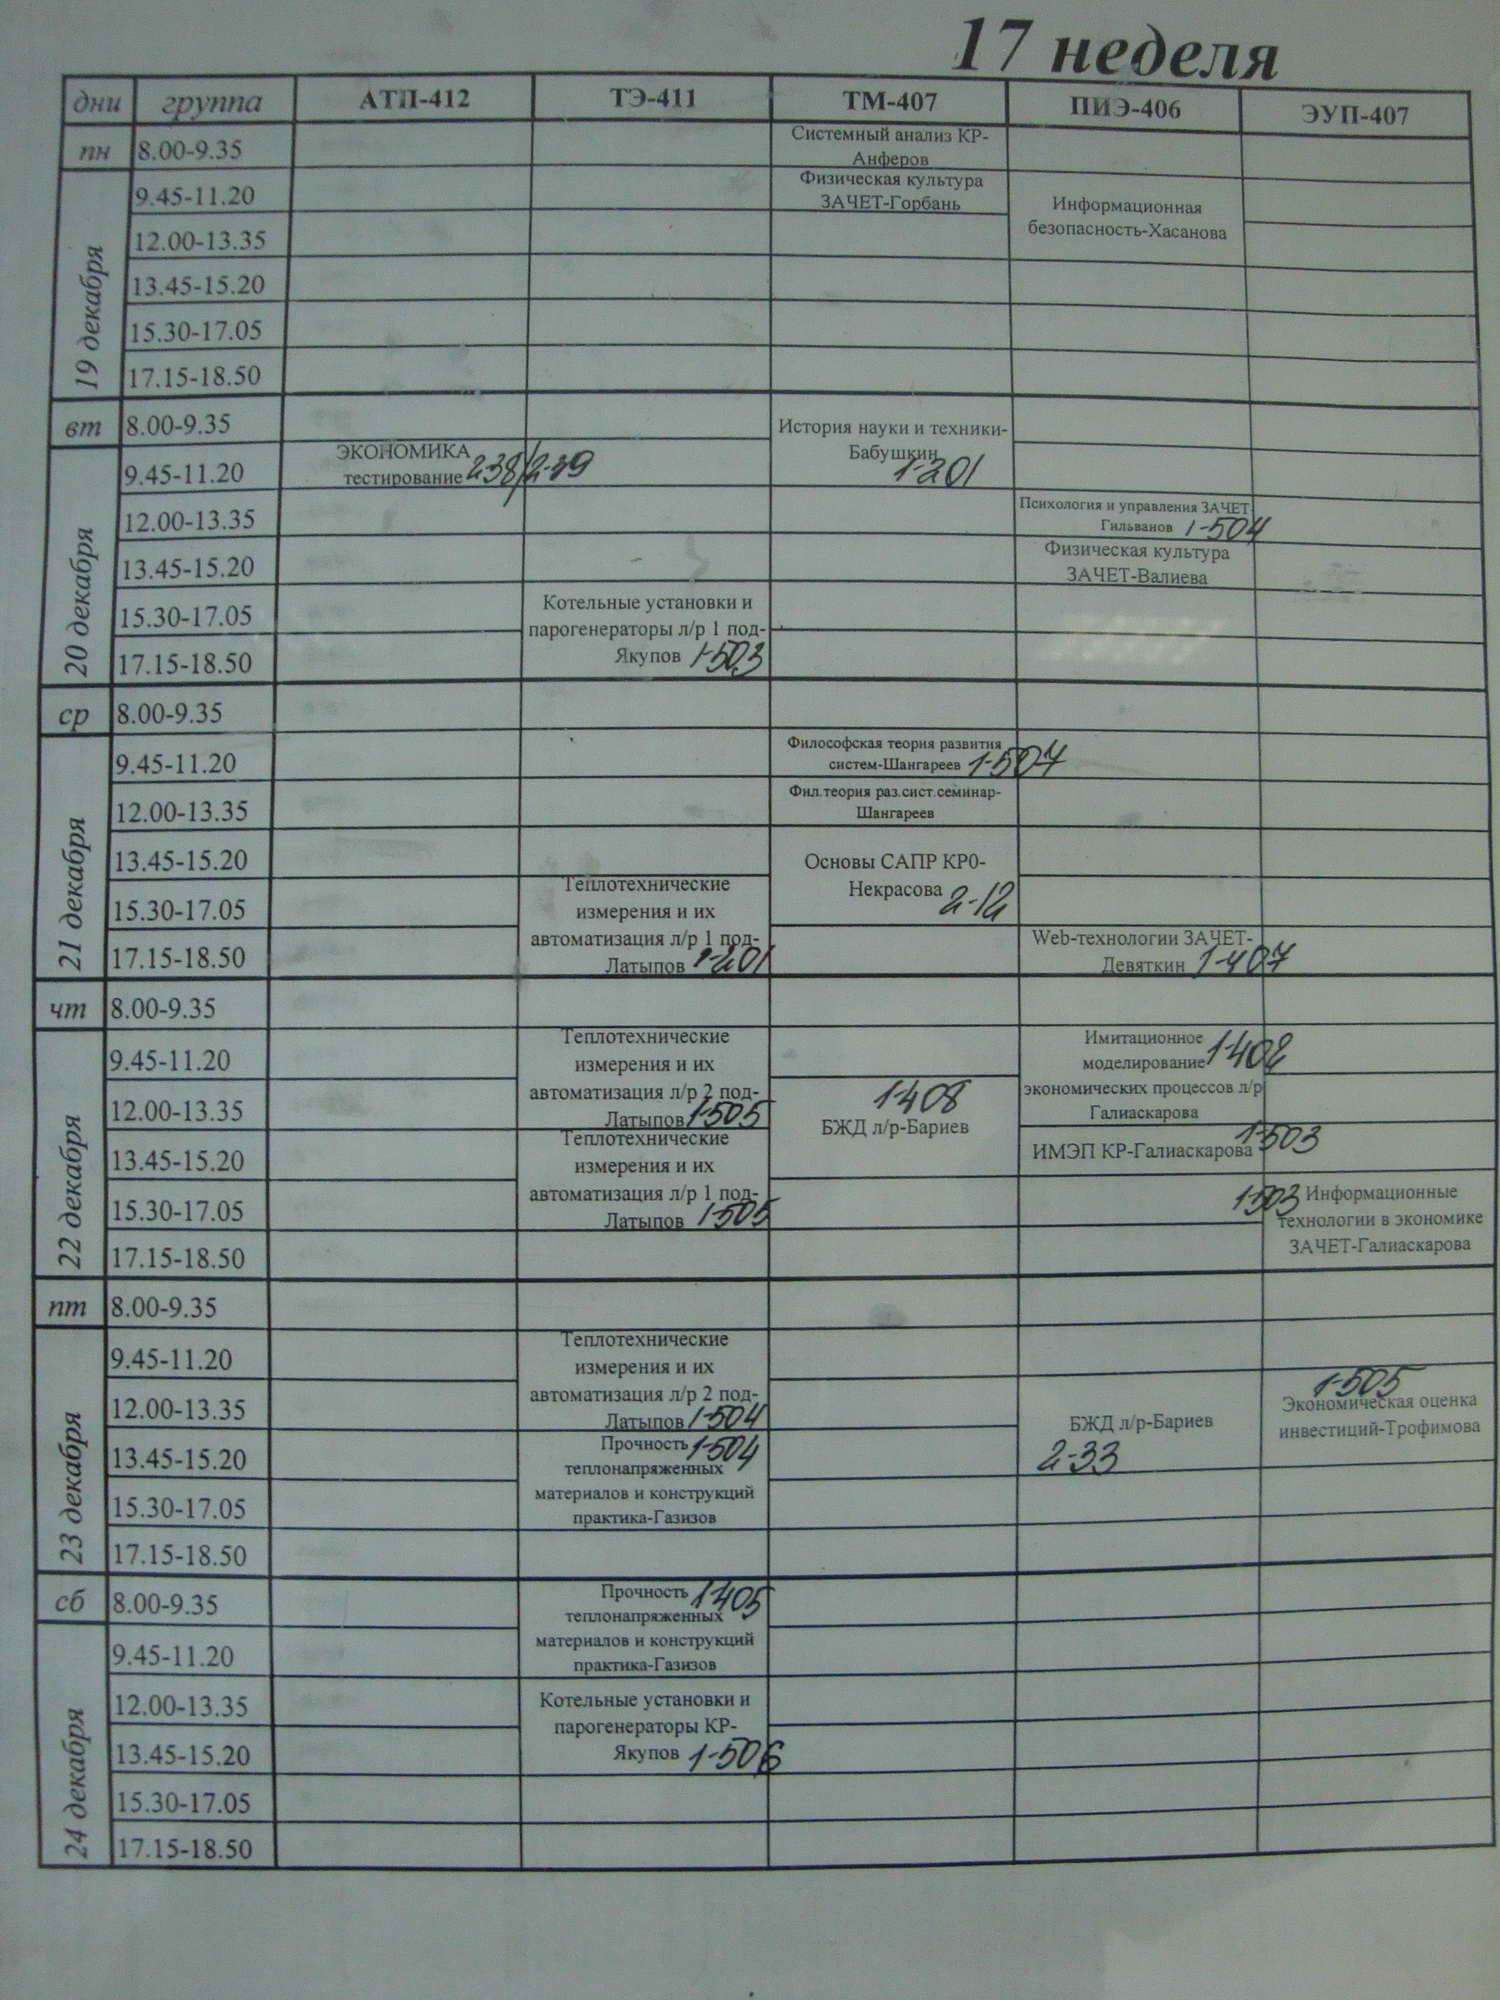 17 неделя
дни группа АТП-412 ТЭ-411 ТМ-407 ПИЭ-406 ЭУП-407
пн 8.00-9.35
Системный анализ КР-
Анферов
19 декабря
9.45-11.20
Физическая культура
ЗАЧЕТ-Горбань
Информационная
безопасность-Хасанова
12.00-13.35
13.45-15.20
15.30-17.05
17.15-18.50
вт 8.00-9.35
История науки и техники-
Бабушкин 1-201
20 декабря
9.45-11.20
ЭКОНОМИКА
тестирование 238/2-39
12.00-13.35
Психология и управления ЗАЧЕТ-
Гильванов 1-504
13.45-15.20
Физическая культура
ЗАЧЕТ-Валиева
15.30-17.05
Котельные установки и
парогенераторы л/р 1 под-
Якупов 1-503
17.15-18.50
ср 8.00-9.35
21 декабря
9.45-11.20
Философская теория развития
систем-Шангареев 1-507
12.00-13.35
Фил.теория раз.сист.семинар-
Шангареев
13.45-15.20
Основы САПР КР0-
Некрасова 2-12
15.30-17.05
Теплотехнические
измерения и их
автоматизация л/р 1 под-
Латыпов 1-201
17.15-18.50
Web-технологии ЗАЧЕТ-
Девяткин 1-407
чт 8.00-9.35
22 декабря
9.45-11.20
Теплотехнические
измерения и их
автоматизация л/р 2 под-
Латыпов 1-505
Имитационное
моделирование 1-402
экономических процессов л/р
Галиаскарова
12.00-13.35
1-408
БЖД л/р-Бариев
13.45-15.20
Теплотехнические
измерения и их
автоматизация л/р 1 под-
Латыпов 1-505
ИМЭП КР-Галиаскарова 1-503
15.30-17.05
1-503 Информационные
технологии в экономике
ЗАЧЕТ-Галиаскарова
17.15-18.50
пт 8.00-9.35
23 декабря
9.45-11.20
Теплотехнические
измерения и их
автоматизация л/р 2 под-
Латыпов 1-504
12.00-13.35
БЖД л/р-Бариев
2-33
1-505
Экономическая оценка
инвестиций-Трофимова
13.45-15.20
Прочность 1-504
теплонапряженных
материалов и конструкций
практика-Газизов
15.30-17.05
17.15-18.50
сб 8.00-9.35
Прочность 1-405
теплонапряженных
материалов и конструкций
практика-Газизов
24 декабря
9.45-11.20
12.00-13.35
Котельные установки и
парогенераторы КР-
Якупов 1-506
13.45-15.20
15.30-17.05
17.15-18.50